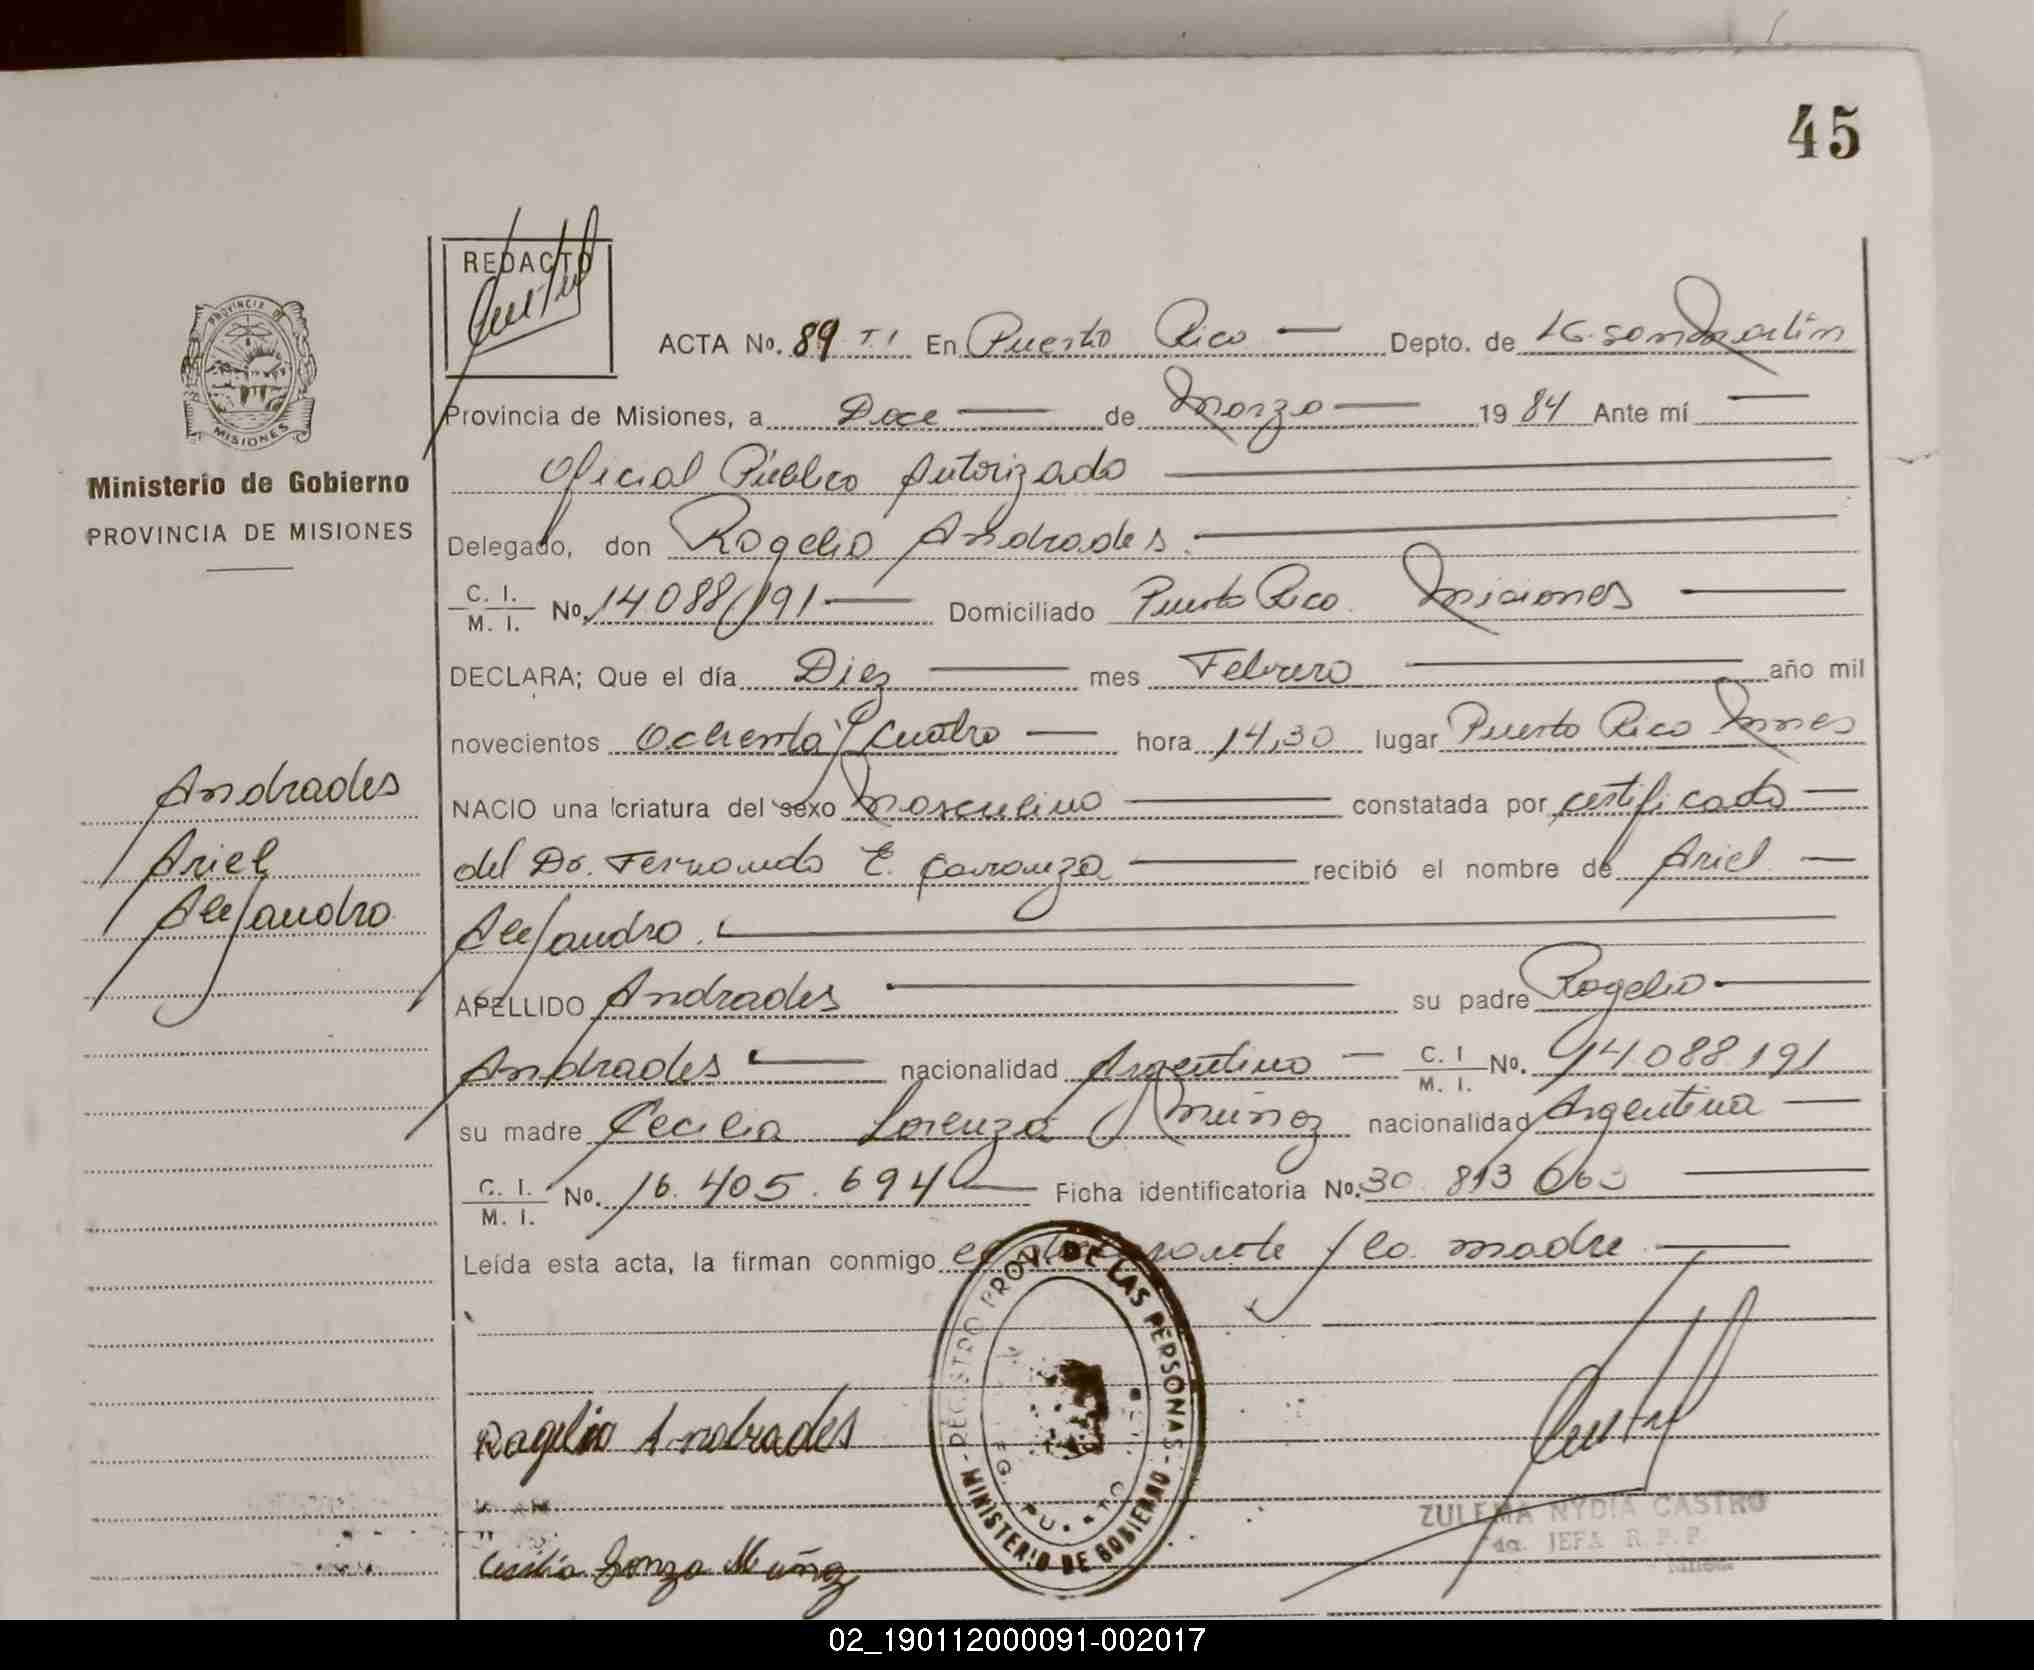 45
REDACTO
ACTA No. 89 T.I En Puerto Rico — Depto. de LG. San Martín
PROVINCIA DE MISIONES
Provincia de Misiones, a Doce — de Marzo — 1984 Ante mí —
Ministerio de Gobierno
PROVINCIA DE MISIONES
Oficial Público Autorizado
Delegado, don Rogelio Andrades.
C. I. M. I. No. 14.088.191 — Domiciliado Puerto Rico. Misiones —
DECLARA; Que el día Diez — mes Febrero — año mil
novecientos ochenta y cuatro — hora 14,30 lugar Puerto Rico Mnes
Andrades
Ariel
Alejandro
NACIO una criatura del sexo Masculino — constatada por certificado —
del Dr. Fernando E. Carranza — recibió el nombre de Ariel —
Alejandro.
APELLIDO Andrades — su padre Rogelio —
Andrades — nacionalidad Argentino — C. I M. I. No. 14.088.191
su madre Cecilia Lorenza Muñoz nacionalidad Argentina —
C. I. M. I. No. 16.405.694 — Ficha identificatoria No. 30.813.063 —
Leída esta acta, la firman conmigo y la madre.
REGISTRO PROV. DE LAS PERSONAS - MINISTERIO DE GOBIERNO -
Rogelio Andrades
ZULEMA NYDIA CASTRO
JEFA R. P. P.
Cecilia Lorenza Muñoz
02_190112000091-002017